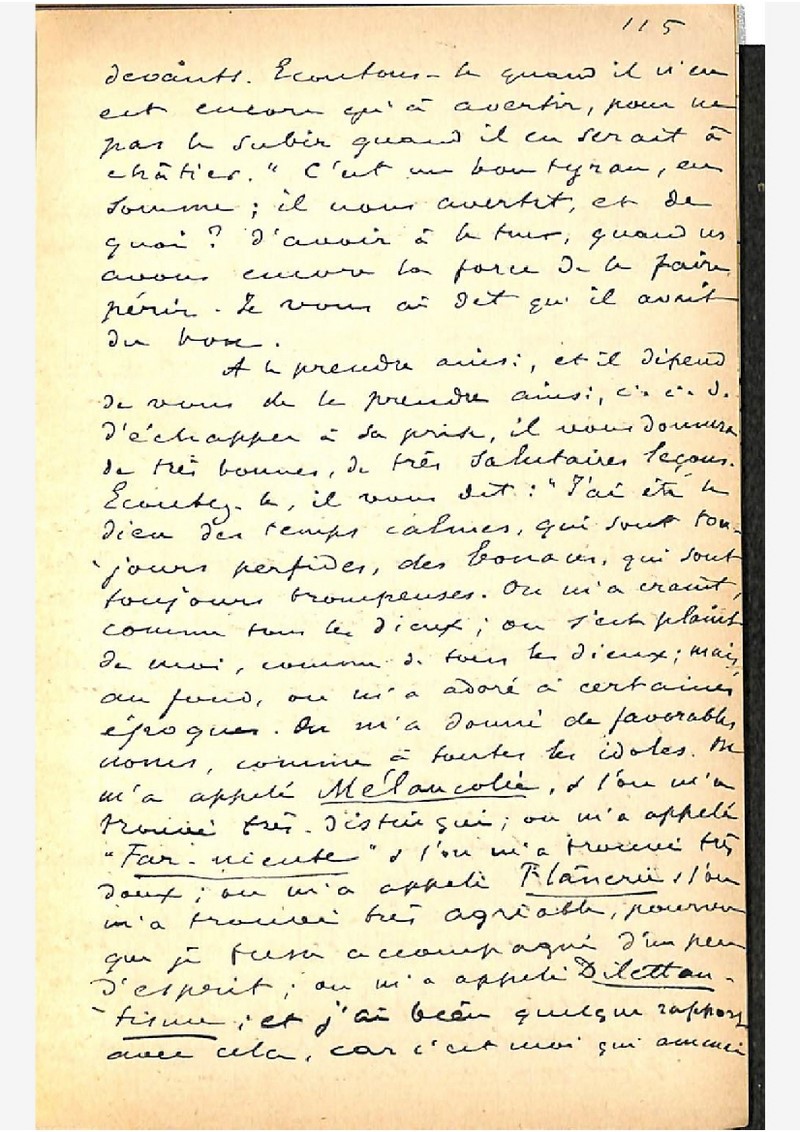 115
devants. Ecoutons-le quand il n'en
est encore qu'à avertir, pour ne
pas le subir quand il en serait à
châtier." C'est un bon tyran, en
somme ; il nous avertit, et de
quoi ? D'avoir à le tuer, quand ns
avons encore la force de le faire
périr. Je vous ai dit qu'il avait
du bon.
A le prendre ainsi, et il dépend
de vous de le prendre ainsi, c. à. d.
d'échapper à sa prise, il vous donnera
de très bonnes, de très salutaires leçons.
Ecoutez-le, il vous dit : "J'ai été le
dieu des temps calmes, qui sont tou-
jours perfides, des bonaces, qui sont
toujours trompeuses. On m'a craint,
comme tous les dieux ; on s'est plaint
de moi, comme de tous les dieux ; mais,
au fond, on m'a adoré à certaines
époques. On m'a donné de favorables
noms, comme à toutes les idoles. On
m'a appelé Mélancolie, & l'on m'a
trouvé très-distingué ; on m'a appelé
"Far-niente" & l'on m'a trouvé très
doux ; on m'a appelé Flânerie & l'on
m'a trouvé très agréable, pourvu
que je fusse accompagné d'un peu
d'esprit ; on m'a appelé Dilettan-
tisme ; et j'ai bien quelque rapport
avec cela, car c'est moi qui